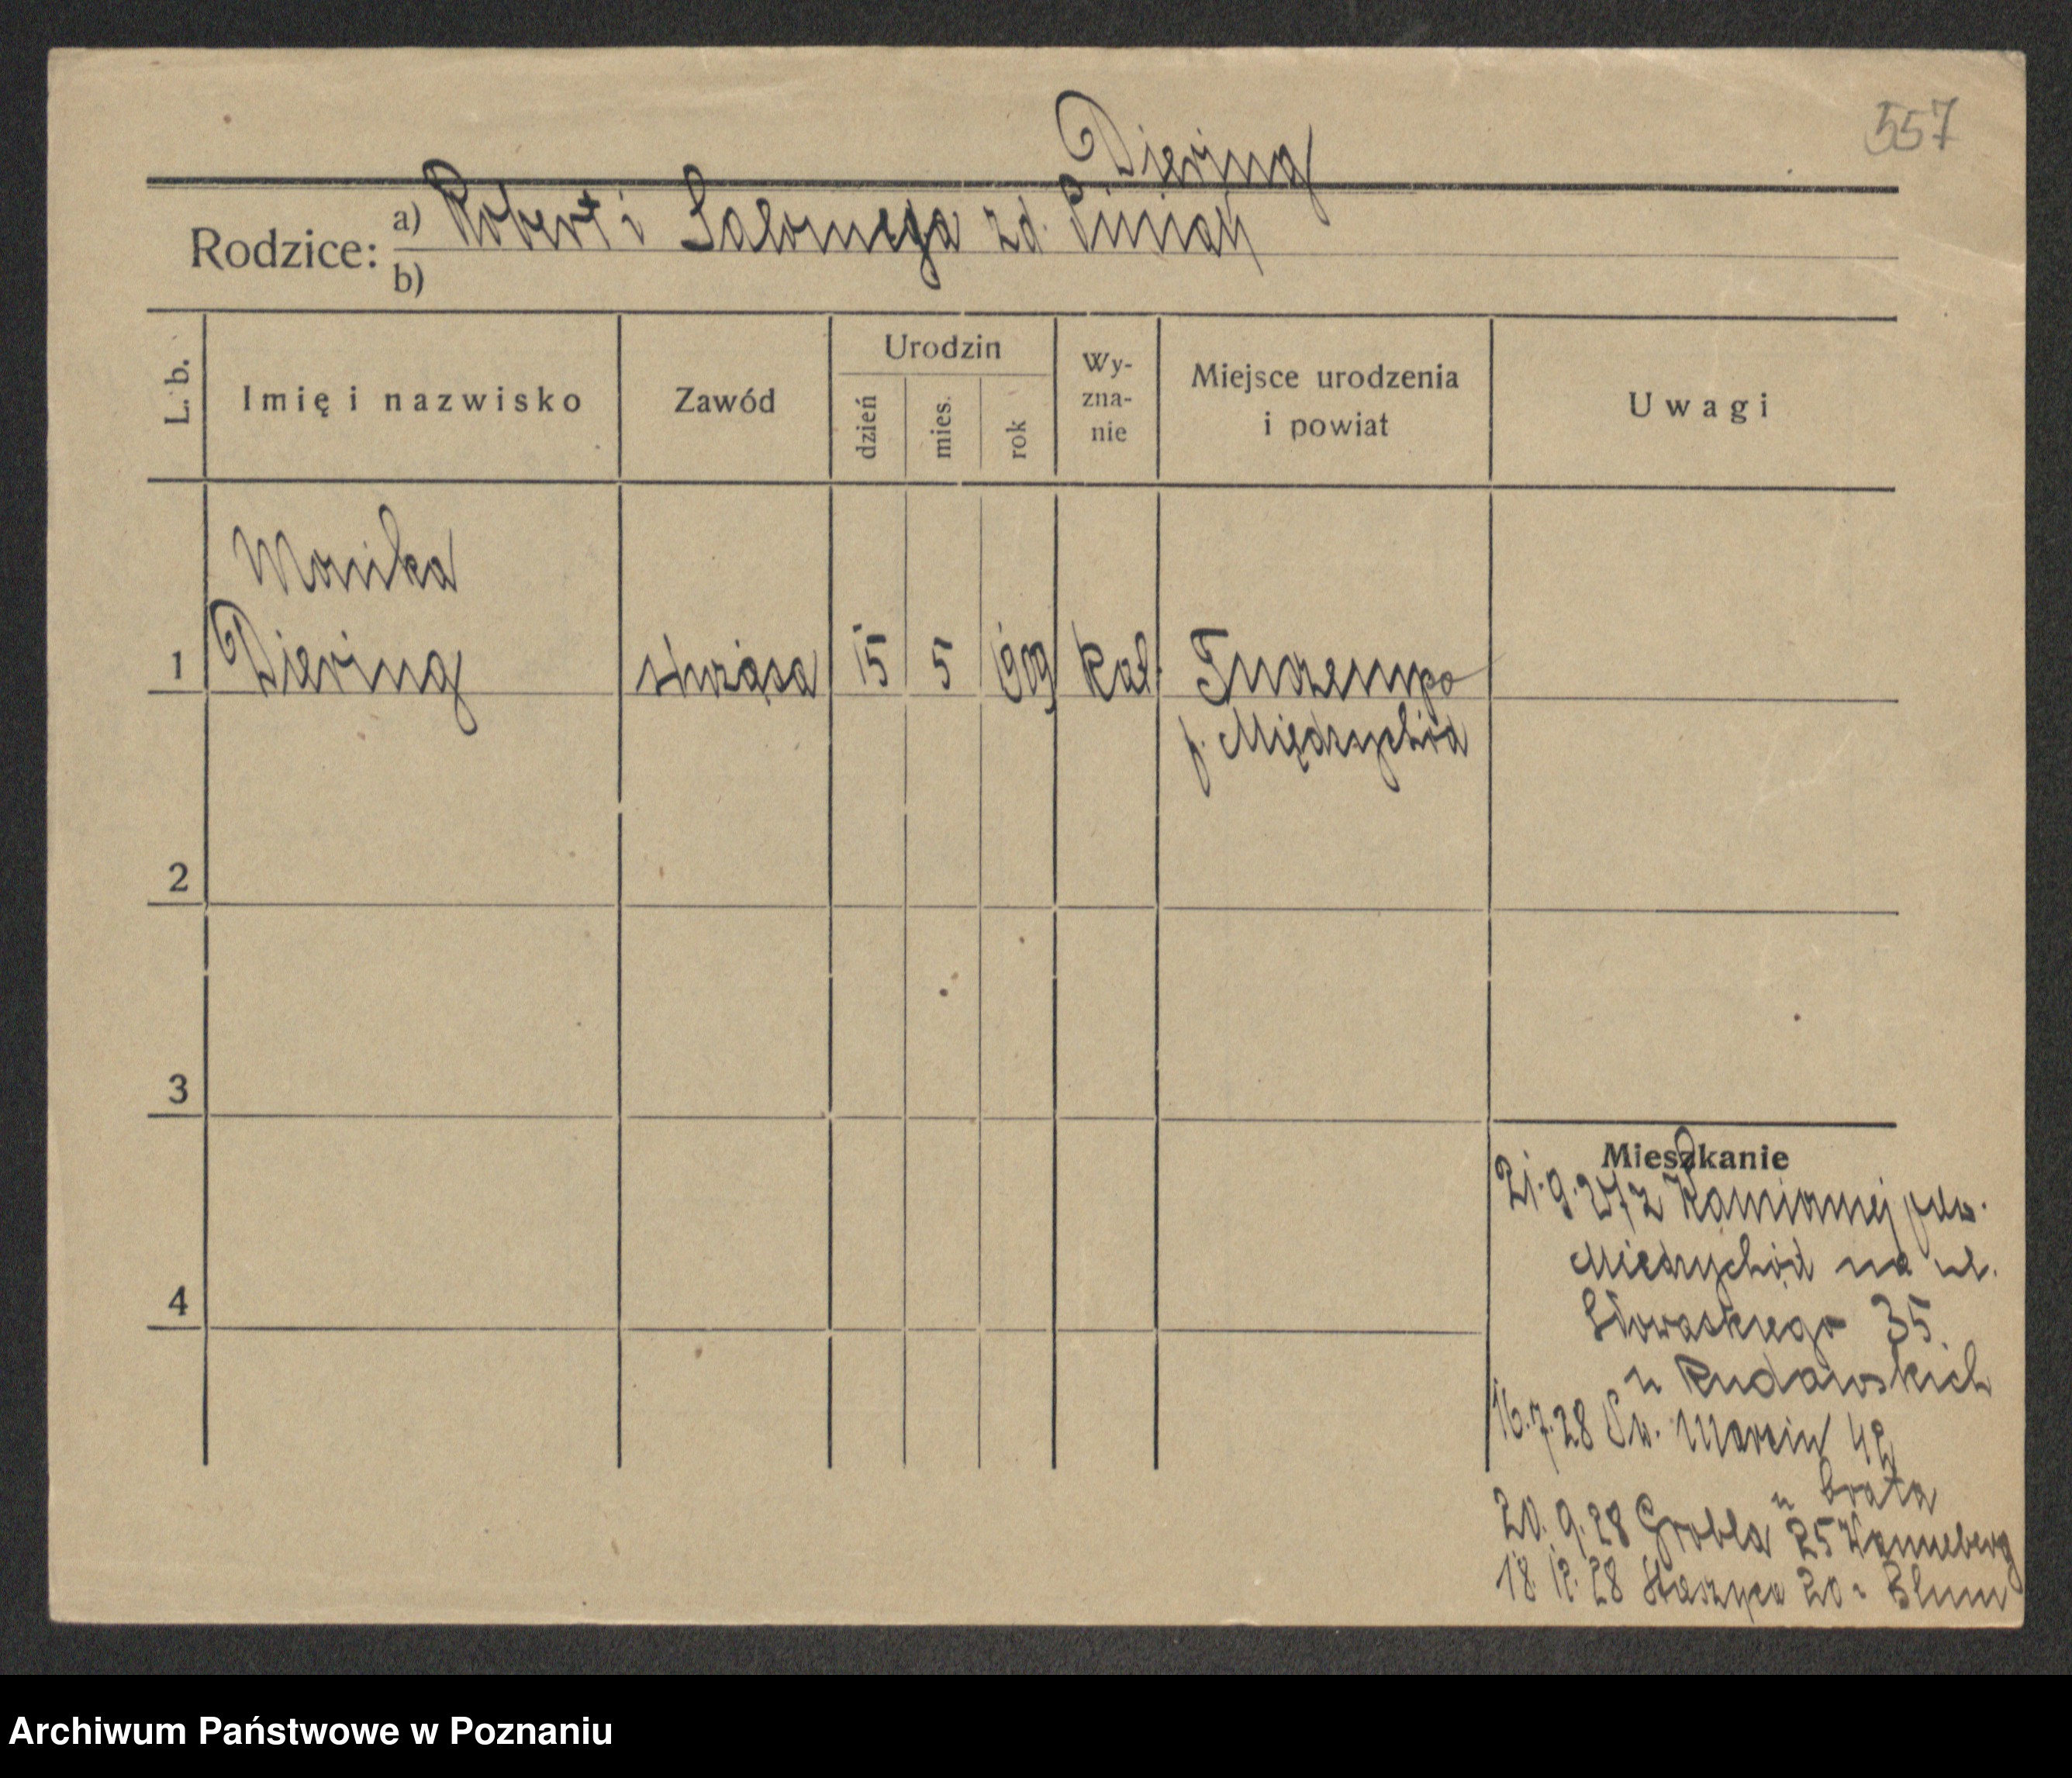 557
Diering
Rodzice: a) Robert i Salomega zd.
b)
L. b.
Imię i nazwisko
Zawód
Urodzin
dzień
mies.
rok
Wy-
zna-
nie
Miejsce urodzenia
i powiat
Uwagi
Monika
1 Diering służąca 15 5 909 kat.
p. Międzychód
2
3
4
Mieszkanie
21.9.27 z Kamionnej pow.
Międzychód na ul.
Słowackiego 35
u Rudawskich
16.7.28 Św. Marcin 42
u brata
20.9.28 Grobla 25 Wanneberg
18.12.28 Staszyca 20 Blum
Archiwum Państwowe w Poznaniu